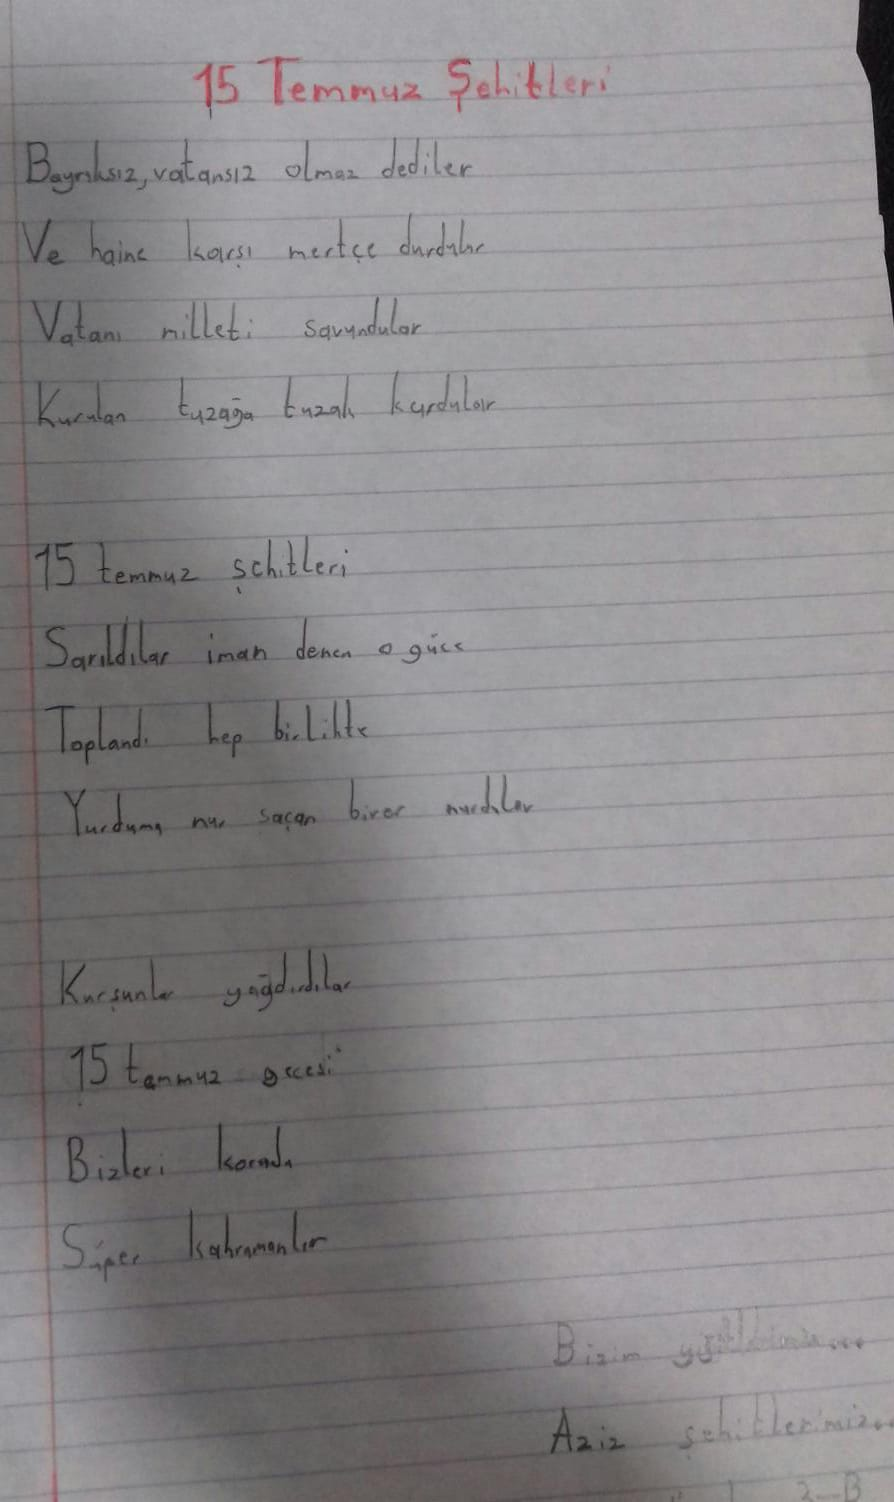 15 Temmuz Şehitleri
Bayraksız, vatansız olmaz dediler
Ve haine karşı mertçe durdular
Vatanı milleti savundular
Kurulan tuzağa tuzak kurdular
15 temmuz şehitleri
Sarıldılar iman denen o güce
Toplandı hep birlikte
Yurduma nur saçan birer nurdılar
Kurşunlar yağdırdılar
15 temmuz gecesi
Bizleri korudu
Süper kahramanlar
Bizim
Aziz şehitlerimiz...